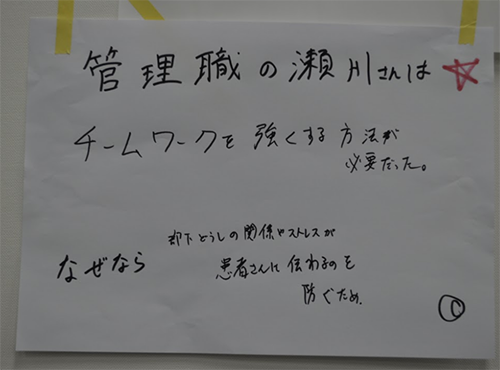 管理職の瀬川さんは
チームワークを強くする方法が
必要だった。
なぜなら
部下どうしの関係やストレスが
患者さんに伝わるのを
防ぐため。
C